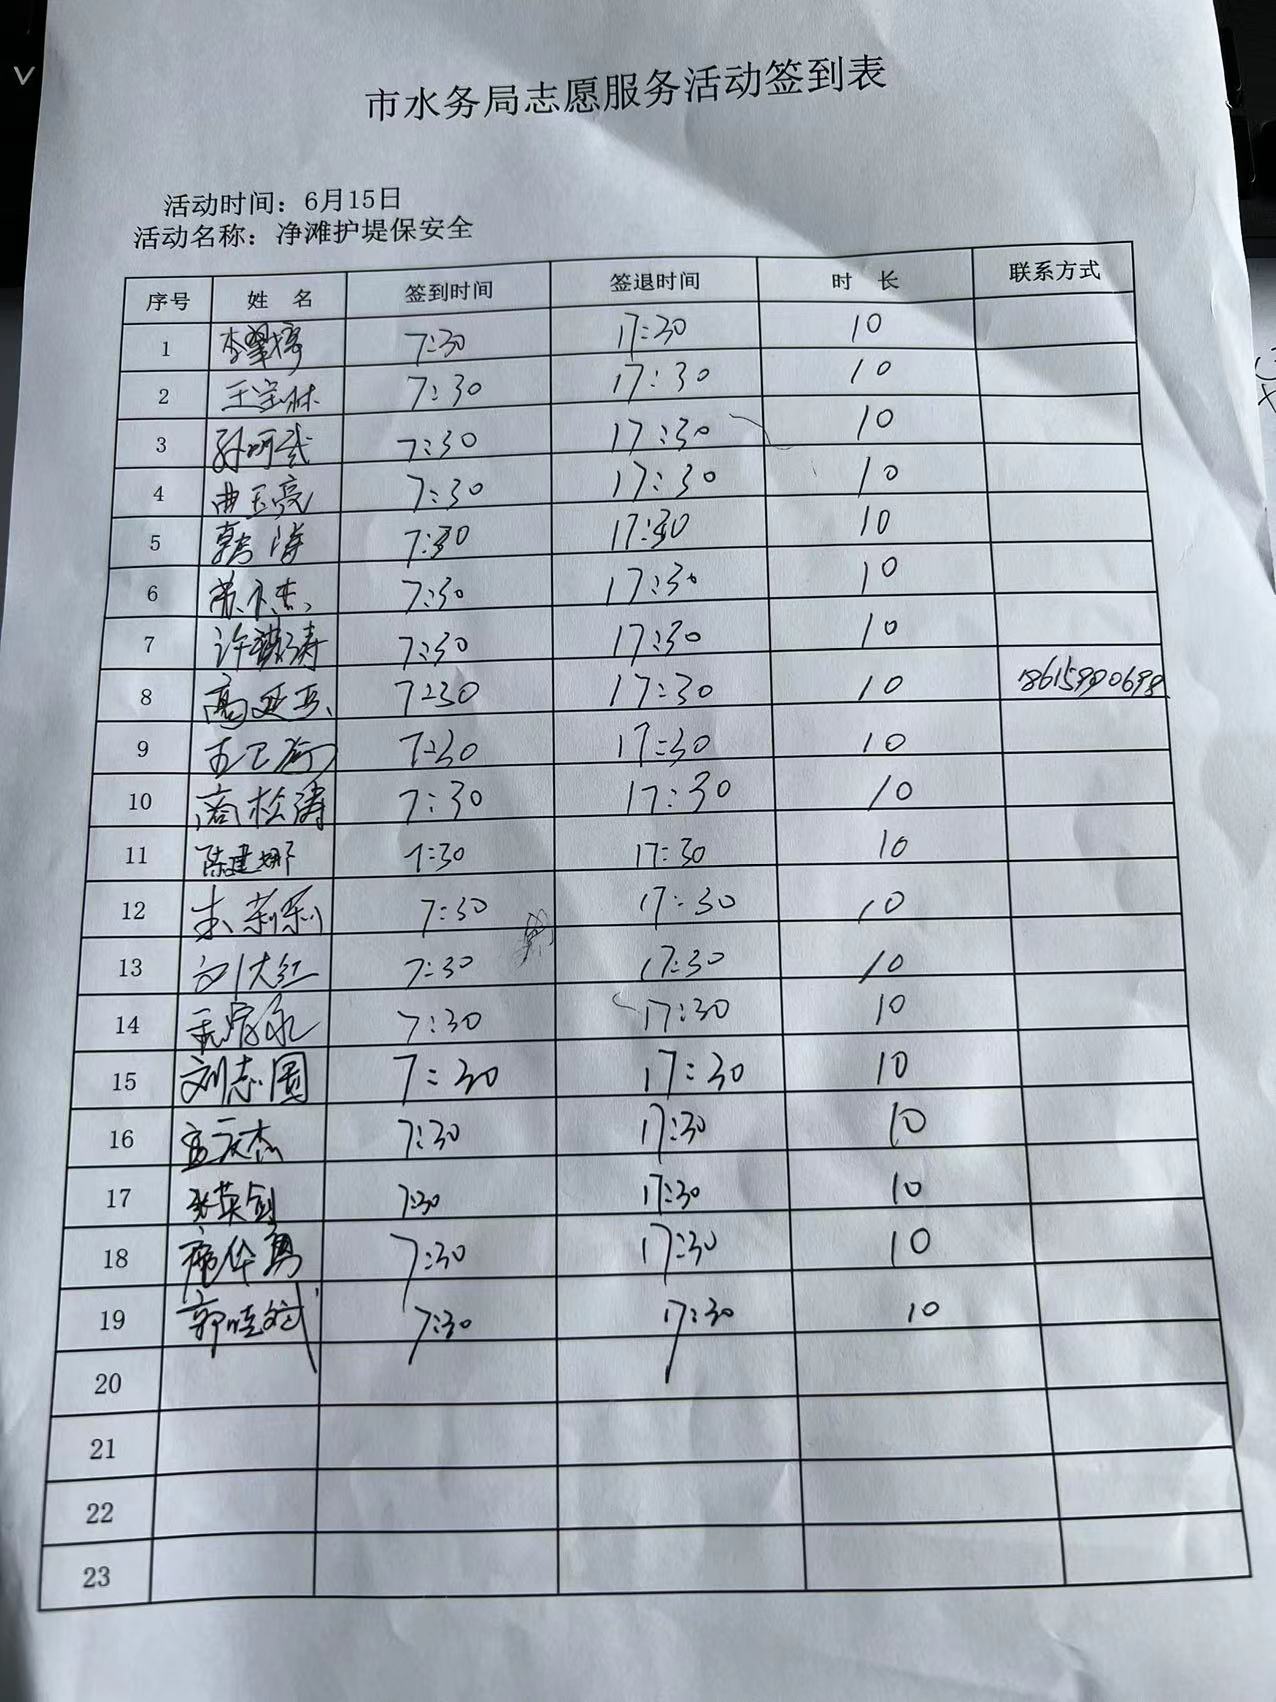 市水务局志愿服务活动签到表
活动时间：6月15日
活动名称：净滩护堤保安全
序号 姓 名 签到时间 签退时间 时 长 联系方式
1 7:30 17:30 10
2 王宝林 7:30 17:30 10
3 7:30 17:30 10
4 曲玉亮 7:30 17:30 10
5 韩涛 7:30 17:30 10
6 7:30 17:30 10
7 7:30 17:30 10
8 7:30 17:30 10
9 7:30 17:30 10
10 商松涛 7:30 17:30 10
11 陈建娜 7:30 17:30 10
12 朱莉莉 7:30 17:30 10
13 刘大红 7:30 17:30 10
14 7:30 17:30 10
15 刘志图 7:30 17:30 10
16 孟庆杰 7:30 17:30 10
17 张英剑 7:30 17:30 10
18 7:30 17:30 10
19 郭晓斌 7:30 17:30 10
20
21
22
23